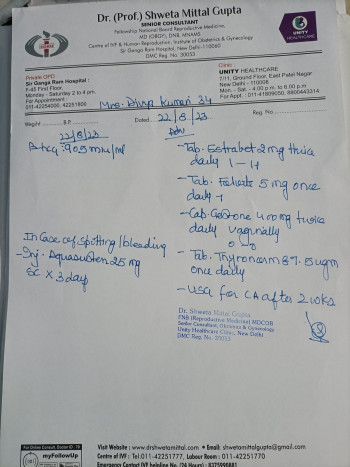 Dr. (Prof.) Shweta Mittal Gupta
SENIOR CONSULTANT
Fellowship National Board Reproductive Medicine,
MD (OBGY), DNB, MNAMS
Centre of IVF & Human Reproduction, Institute of Obstetrics & Gynecology
Sir Ganga Ram Hospital, New Delhi-110060
DMC Reg. No. 30053
UNITY
HEALTHCARE
Private OPD
Sir Ganga Ram Hospital:
F-45 First Floor
Monday - Saturday 2 to 4 pm.
For Appointment :
011 42254000, 42251800
Clinic :
UNITY HEALTHCARE
7/11, Ground Floor, East Patel Nagar
New Delhi - 110008
Mon. - Sat. - 4.00 p.m. to 6.00 p.m
For Appt. : 011-41809050, 8800443314
Mrs. Divya Kumari 34
Weight B.P. Dated 22/8/23 Reg. No.
22/8/23
Adv
βhcg : 905 mIU/ml
- Tab. Estrabet 2mg thrice
daily 1-1-1
- Tab. 5 mg once
daily
- Cap. Gestone 400 mg twice
daily vaginally
In Case of spotting / bleeding
- Inj. Aquasusten 25 mg
SC x 3 days
- Tab. Thyronorm 87.5 ugm
once daily
- USG for CA after 2 wks
Dr. Shweta Mittal Gupta
FNB (Reproductive Medicine) MDCOB
Senior Consultant, Obstetrics & Gynecology
Unity Healthcare Clinic, New Delhi
DMC Reg. No. 30053
For Online Consult, Doctor ID : 78
myFollowUp
Visit Website : www.drshwetamittal.com • Email: shwetamittalgupta@gmail.com
Centre of IVF : Tel.011-42251777, Labour Room : 011-42251770
Emergency Contact IVF helpline No. (24 Hours) : 8375990881